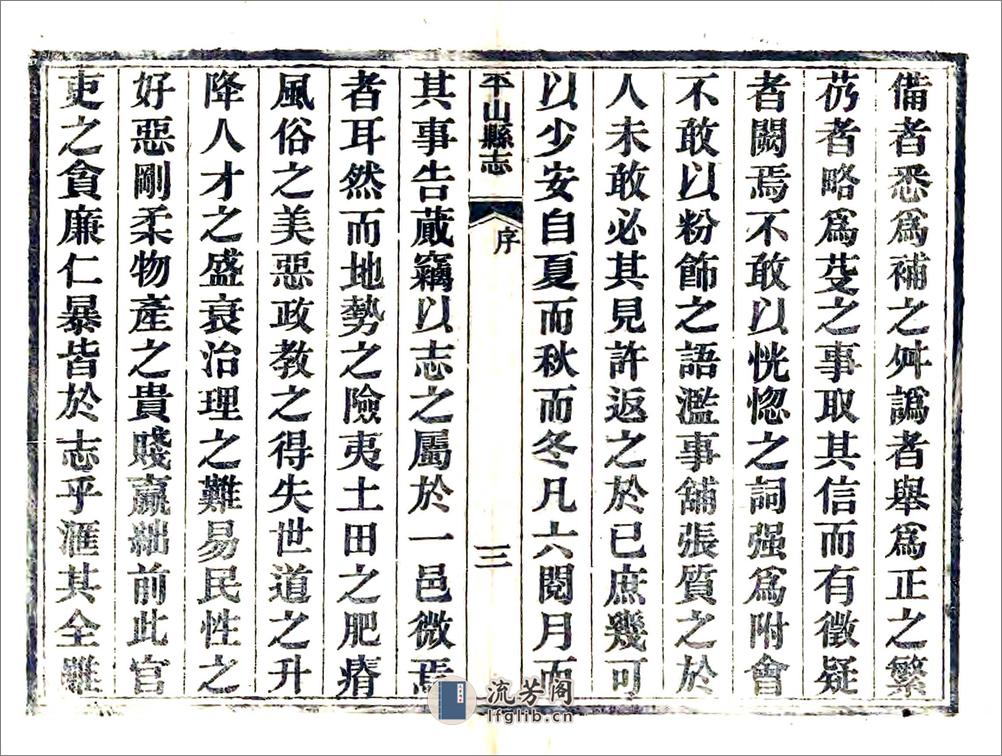 備者悉爲補之舛譌者舉爲正之繁
茀者略爲芟之事取其信而有徵疑
者闕焉不敢以恍惚之詞强爲附會
不敢以粉飾之語濫事鋪張質之於
人未敢必其見許返之於已庶幾可
以少安自夏而秋而冬凡六閱月而
平山縣志 序 三
其事告蕆竊以志之屬於一邑微焉
者耳然而地勢之險夷土田之肥瘠
風俗之美惡政教之得失世道之升
降人才之盛衰治理之難易民性之
好惡剛柔物產之貴賤贏絀前此官
吏之貪廉仁暴皆於志乎滙其全雖
流芳阁
lfglib.cn